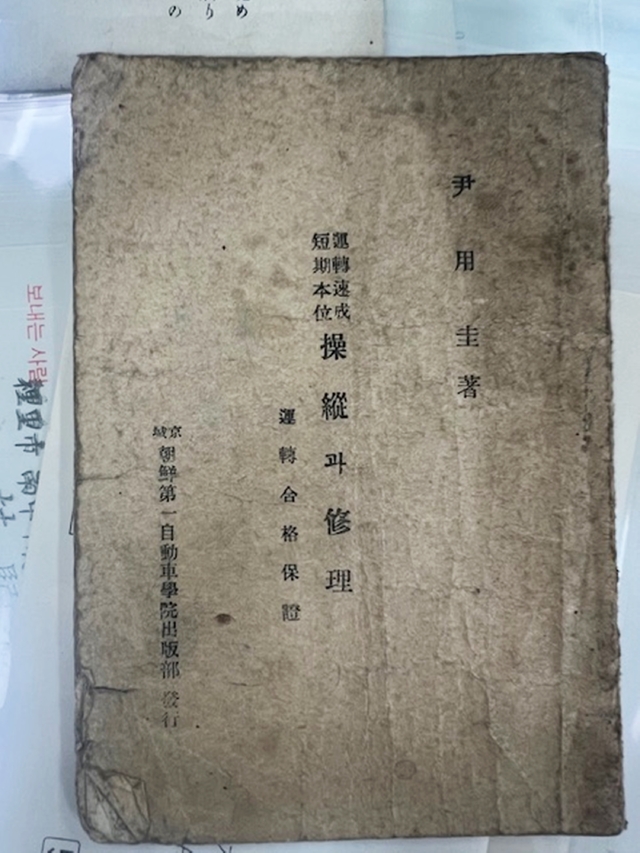 尹用圭著
運轉速成
短期本位
操縱과修理
運轉合格保證
京城
朝鮮第一自動車學院出版部 發行
보내는 사람
め
り
の